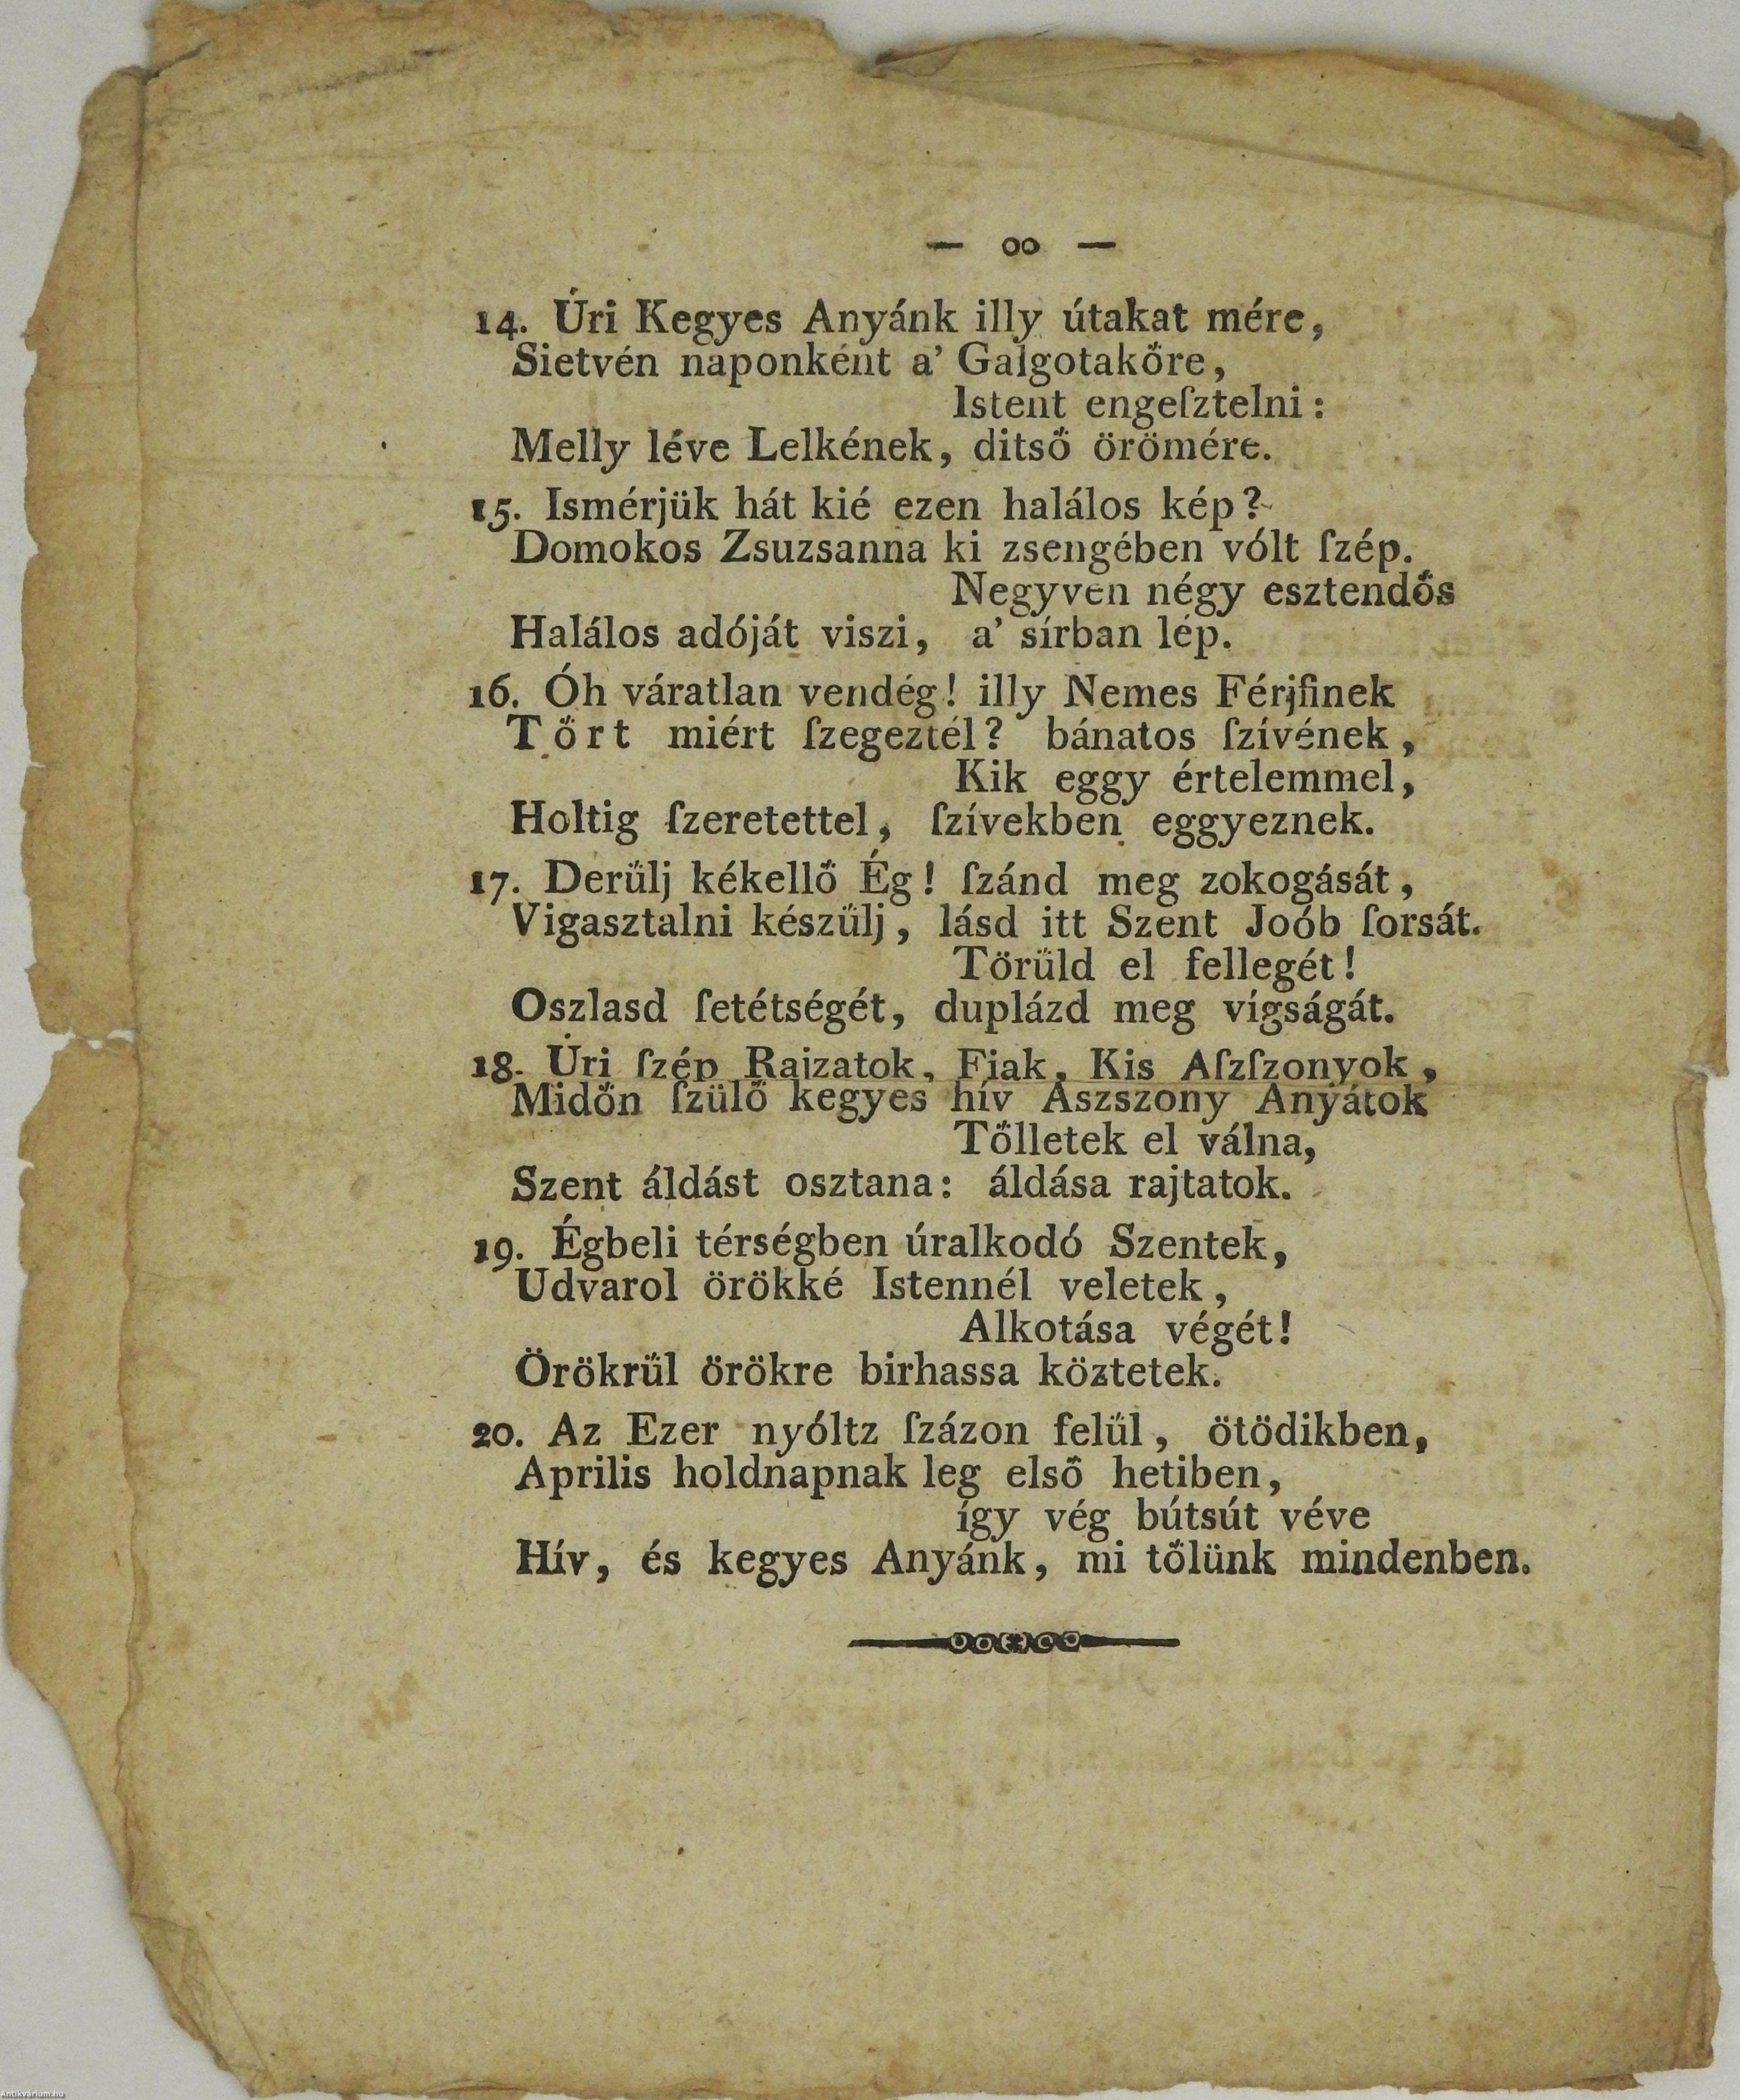 — oo —
14. Úri Kegyes Anyánk illy útakat mére,
Sietvén naponként a' Galgotakőre,
Istent engeſztelni:
Melly léve Lelkének, ditső örömére.
15. Ismérjük hát kié ezen halálos kép?
Domokos Zsuzsanna ki zsengében vólt ſzép.
Negyven négy esztendős
Halálos adóját viszi, a' sírban lép.
16. Óh váratlan vendég! illy Nemes Férjfinek
Tőrt miért ſzegeztél? bánatos ſzívének,
Kik eggy értelemmel,
Holtig ſzeretettel, ſzívekben eggyeznek.
17. Derűlj kékellő Ég! ſzánd meg zokogását,
Vigasztalni készűlj, lásd itt Szent Joób ſorsát.
Törűld el fellegét!
Oszlasd ſetétségét, duplázd meg vígságát.
18. Úri ſzép Rajzatok, Fiak, Kis Aſzſzonyok,
Midőn ſzülő kegyes hív Aszszony Anyátok
Tőlletek el válna,
Szent áldást osztana: áldása rajtatok.
19. Égbeli térségben úralkodó Szentek,
Udvarol örökké Istennél veletek,
Alkotása végét!
Örökrűl örökre birhassa köztetek.
20. Az Ezer nyóltz ſzázon felűl, ötödikben,
Aprilis holdnapnak leg első hetiben,
így vég bútsút véve
Hív, és kegyes Anyánk, mi tőlünk mindenben.
Antikvárium.hu